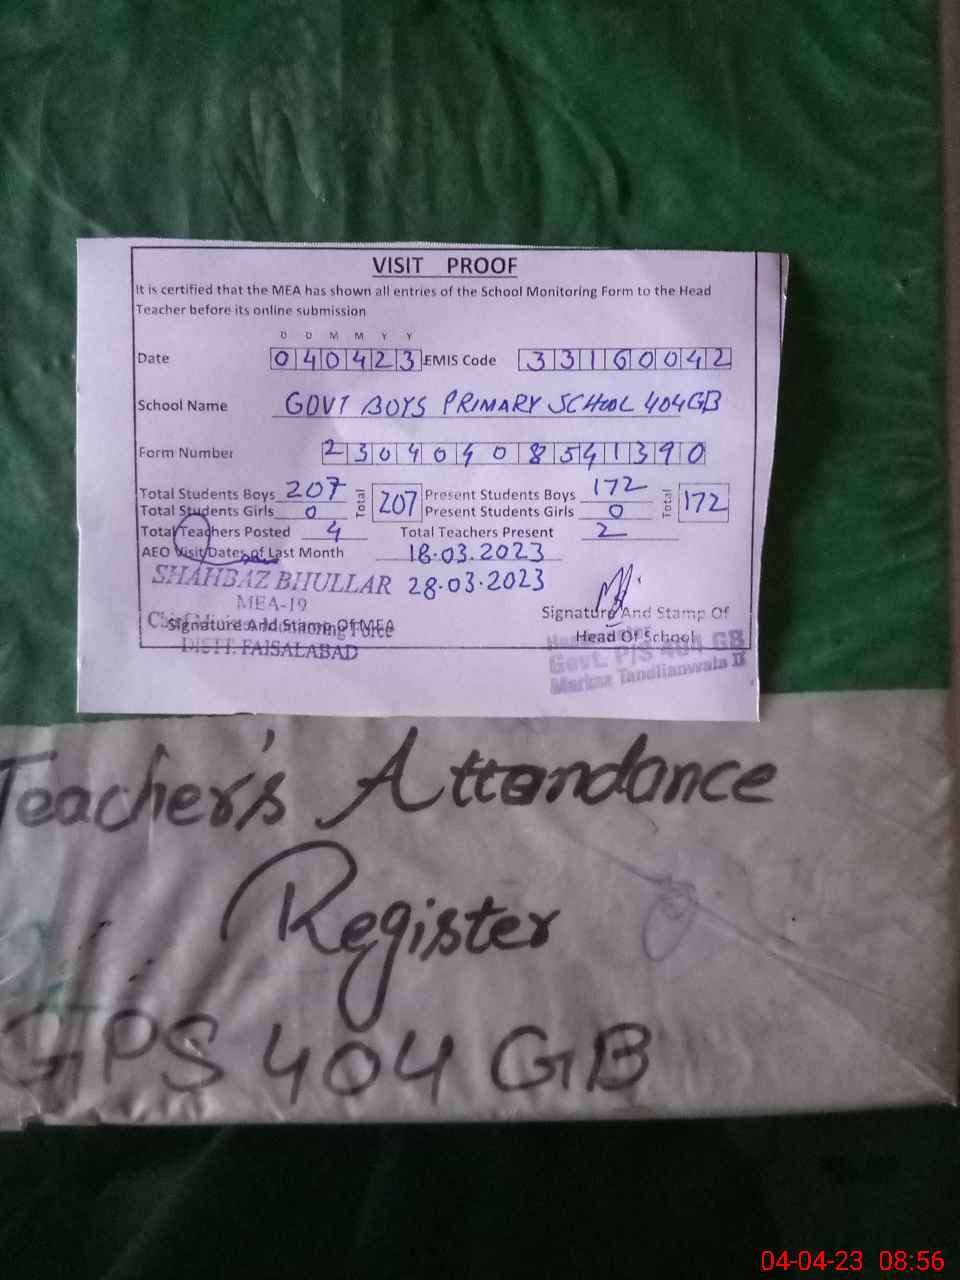 VISIT PROOF
It is certified that the MEA has shown all entries of the School Monitoring Form to the Head
Teacher before its online submission
D D M M Y Y
Date 040423 EMIS Code 33160042
School Name GOVT BOYS PRIMARY SCHOOL 404GB
Form Number 23040408541390
Total Students Boys 207 Total 207 Present Students Boys 172 Total 172
Total Students Girls 0 Present Students Girls 0
Total Teachers Posted 4 Total Teachers Present 2
AEO Visit Dates of Last Month 18.03.2023
SHAHBAZ BHULLAR 28.03.2023
MEA-19
Signature And Stamp Of MEA
Signature And Stamp Of
Head Of School
DISTT. FAISALABAD
Govt. P/S 404 GB
Markaz Tandlianwala II
Teacher's Attendance
Register
GPS 404 GB
04-04-23 08:56